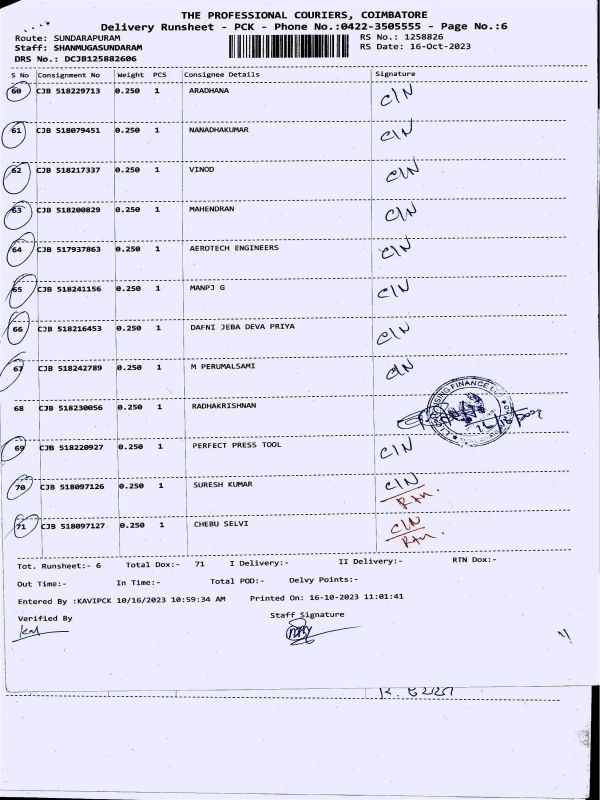 THE PROFESSIONAL COURIERS, COIMBATORE
Delivery Runsheet - PCK - Phone No.:0422-3505555 - Page No.:6
Route: SUNDARAPURAM RS No.: 1258826
Staff: SHANMUGASUNDARAM RS Date: 16-Oct-2023
DRS No.: DCJB125882606
S No Consignment No Weight PCS Consignee Details Signature
60 CJB 518229713 0.250 1 ARADHANA C/N
61 CJB 518079451 0.250 1 NANADHAKUMAR C/N
62 CJB 518217337 0.250 1 VINOD C/N
63 CJB 518200829 0.250 1 MAHENDRAN C/N
64 CJB 517937863 0.250 1 AEROTECH ENGINEERS C/N
65 CJB 518241156 0.250 1 MANPJ G C/N
66 CJB 518216453 0.250 1 DAFNI JEBA DEVA PRIYA C/N
67 CJB 518242789 0.250 1 M PERUMALSAMI C/N
68 CJB 518230056 0.250 1 RADHAKRISHNAN
69 CJB 518220927 0.250 1 PERFECT PRESS TOOL C/N
70 CJB 518097126 0.250 1 SURESH KUMAR C/N
Rtn.
71 CJB 518097127 0.250 1 CHEBU SELVI C/N
Rtn.
Tot. Runsheet:- 6 Total Dox:- 71 I Delivery:- II Delivery:- RTN Dox:-
Out Time:- In Time:- Total POD:- Delvy Points:-
Entered By :KAVIPCK 10/16/2023 10:59:34 AM Printed On: 16-10-2023 11:01:41
Verified By Staff Signature